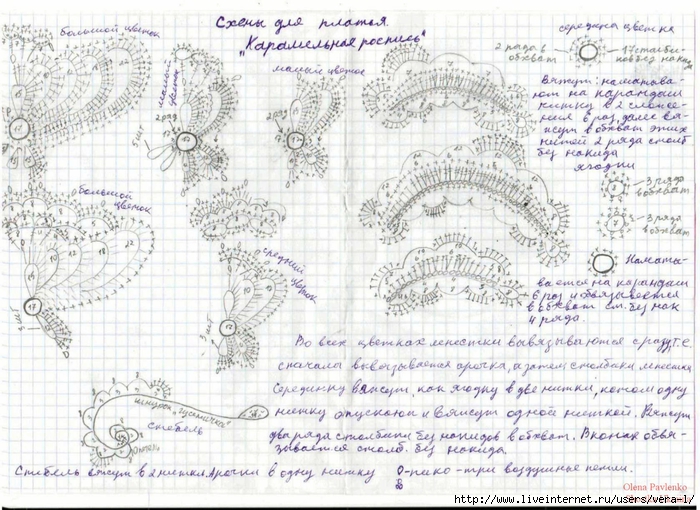 Схемы для платья
"Карамельная роспись"
большой цветок
малый цветок
малый цветок
5 шт
2 ряд
2 ряд
середина цветка
2 ряда в
обхват
17 столби-
ков без накида
Вяжут: наматыва-
ют на карандаш
нитку в 2 сложе-
ния 6 раз, далее вя-
жут в обхват этих
нитей 2 ряда столб
без накида
ягодки
3 ряда
в обхват
3 ряда
в обхват
Намата-
вается на карандаш
6 раз и обвязывается
в обхват ст. без нак
4 ряда.
большой
цветок
средний
цветок
3 шт
Во всех цветках лепестки вывязываются сразу, т.е.
сначала вывязывается арочка, а затем столбики лепестка
Серединку вяжут, как ягодку в две нитки, потом одну
нитку опускают и вяжут одной ниткой. Вяжут
два ряда столбики без накидов в обхват. В конце обвя-
зывается столб. без накида.
шнурок "гусеничка"
стебель
Стебель вяжут в 2 нитки. Арочки в одну нитку
О-пико - три воздушные петли.
Olena Pavlenko
http://www.liveinternet.ru/users/vera-l/